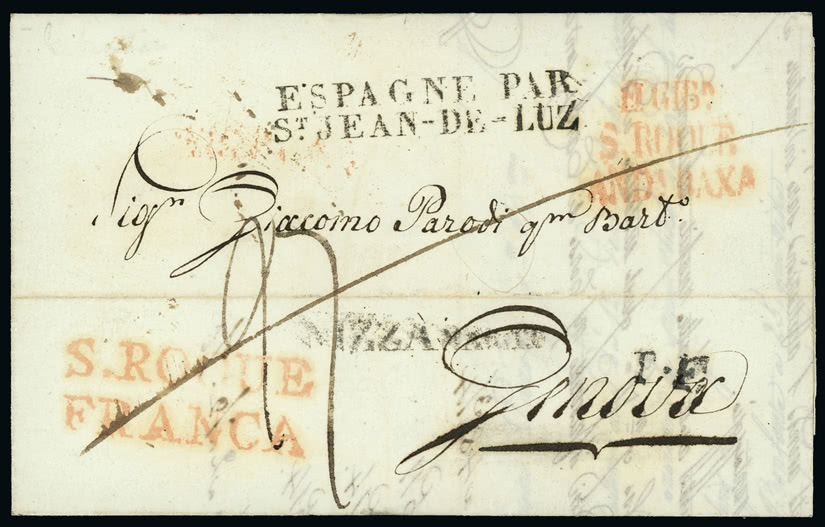 ESPAGNE PAR
S.T JEAN-DE-LUZ
S. ROQUE
AND. BAXA
Sig.r Giacomo Parodi qm Bart.o
NIZZA
P.F.
Genova
S. ROQUE
FRANCA